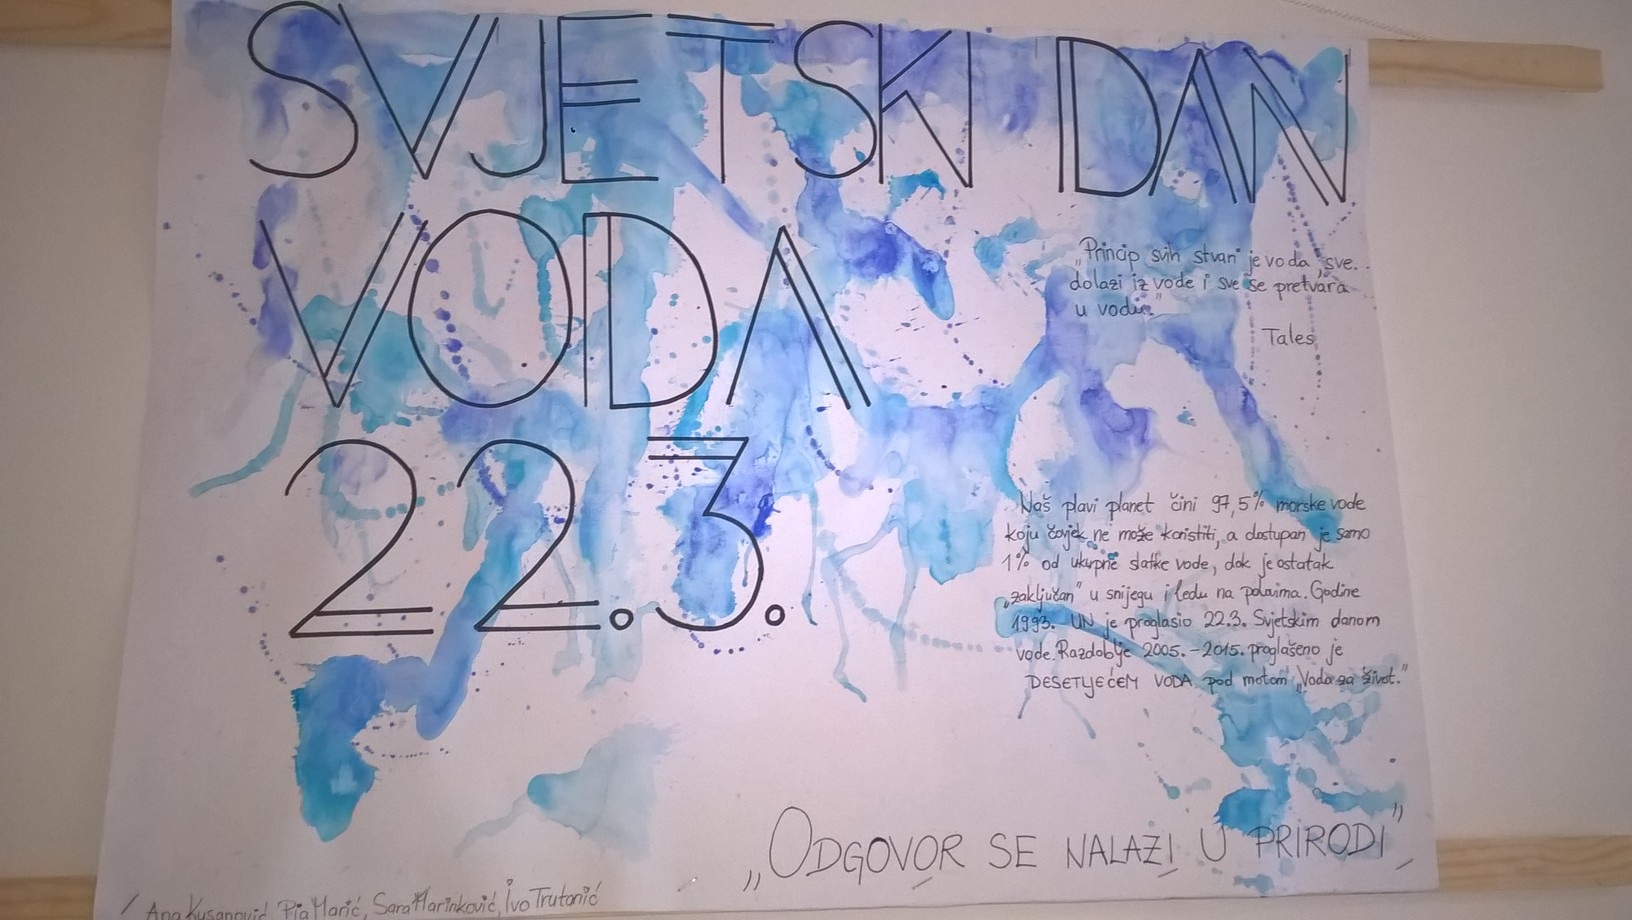 SVJETSKI DAN
VODA
22.3.
„Princip svih stvari je voda, sve
dolazi iz vode i sve se pretvara
u vodu."
Tales
Naš plavi planet čini 97,5% morske vode
koju čovjek ne može koristiti, a dostupan je samo
1% od ukupne slatke vode, dok je ostatak
„zaključan" u snijegu i ledu na polovima. Godine
1993. UN je proglasio 22.3. Svjetskim danom
vode. Razdoblje 2005.-2015. proglašeno je
DESETLJEĆEM VODA pod motom „Voda za život."
„ODGOVOR SE NALAZI U PRIRODI"
Ana Kusanović, Pia Marić, Sara Marinković, Ivo Trutanić